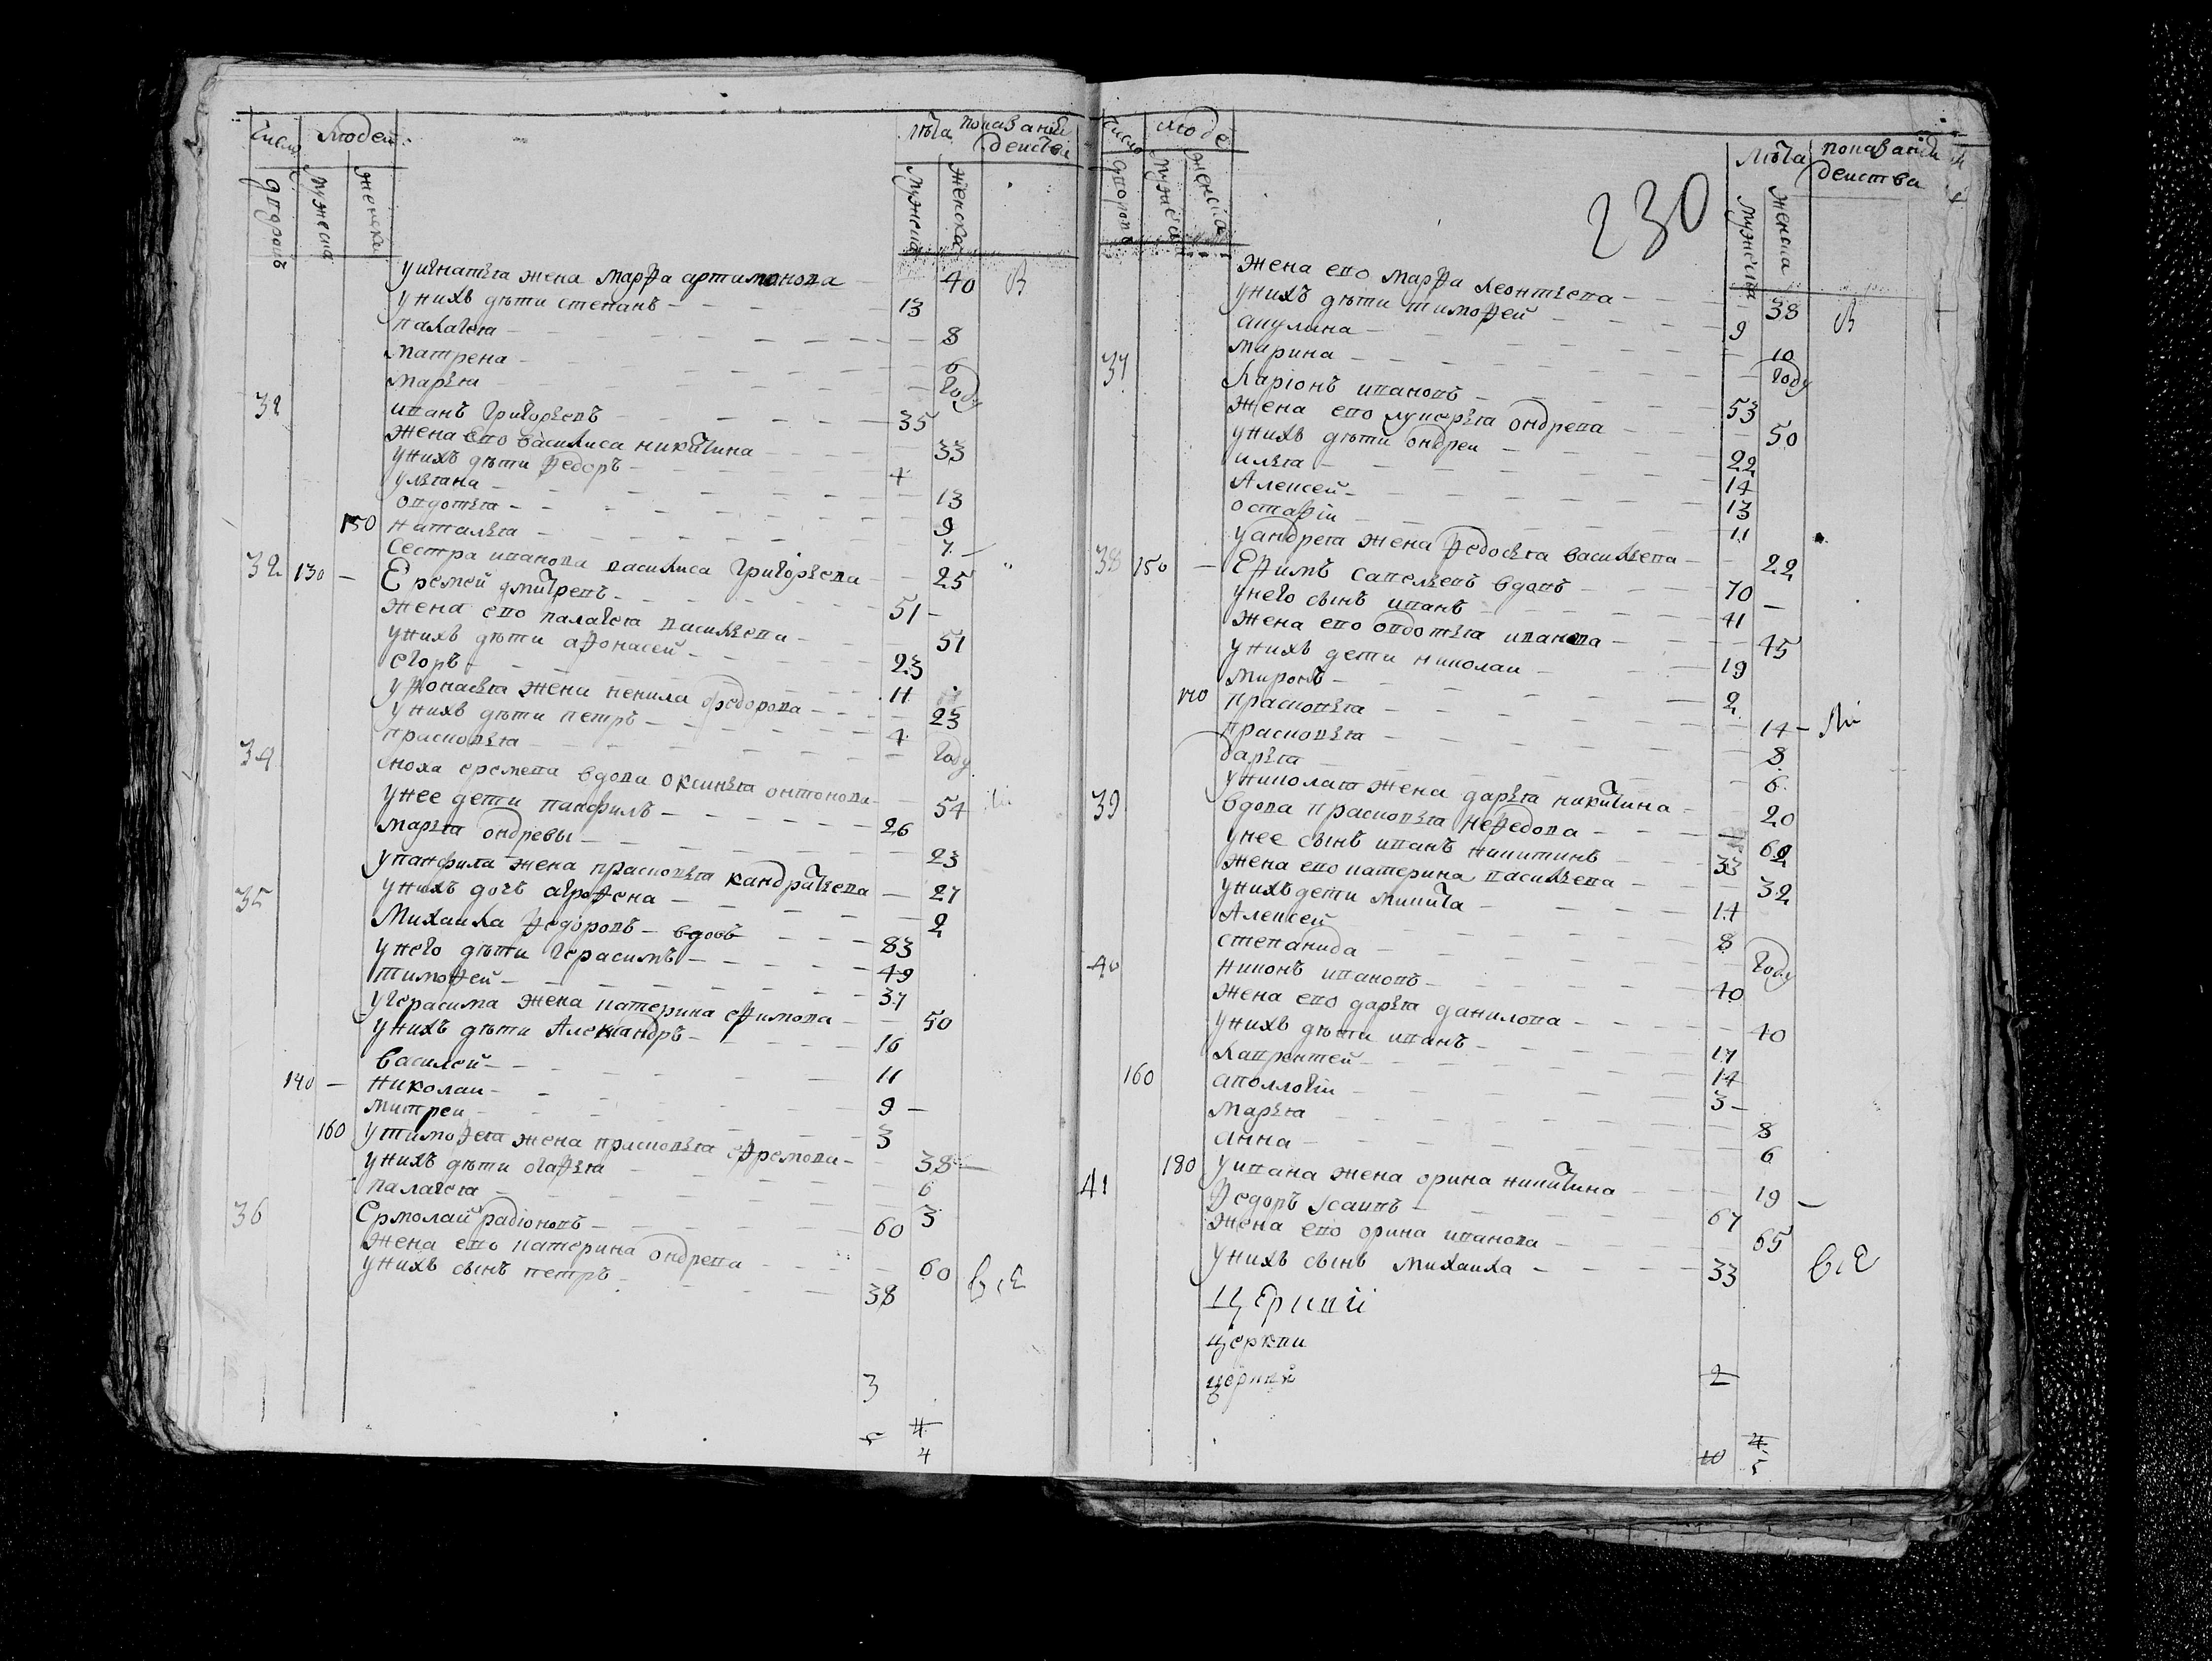 Число Людей Лѣта показаніи действа
дворовъ мужеска женска мужеска женска
уигнатья жена марфа артимонова 40 В
унихъ дѣти степанъ 13
палагея 8
матрена 6
марья году
32 иванъ григорьевъ 35
жена ево василиса никитина 33
унихъ дѣти федоръ 4
ульяна 13
овдотья 9
150 наталья 7
сестра иванова василиса григорьева 25
32 130 Еремей дмитревъ 51
жена ево палагея васильева 51
унихъ дѣти афонасей 23
егоръ 11
уфонасья жена ненила федорова 23
унихъ дѣти петръ 4
прасковья году
34 сноха еремева вдова оксинья онтонова 54
унее дети панфилъ 26
марья ондревы 23
упанфила жена прасковья кандратьева 27
унихъ дочь агрофена 2
35 Михаила федоровъ вдовъ 83
унего дѣти герасимъ 49
тимофей 37
угерасима жена катерина ефимова 50
унихъ дѣти Александръ 16
василей 11
140 николаи 9
митреи 3
160 утимофея жена прасковья ефремова 38
унихъ дѣти огафья 6
палагея 3
36 Ермолай радіоновъ 60
жена ево катерина ондрева 60
унихъ сынъ петръ 38
3
4
4
число люде Лѣта показаніи действа
дворовъ мужеска женска мужеска женска
230
жена ево марфа леонтьева 38 В
унихъ дѣти тимофей 9
акулина 10
марина году
37 Ларіонъ ивановъ 53
жена ево лукерья ондрева 50
унихъ дѣти ондреи 22
илья 14
Алексей 13
остафіи 11
уандрея жена федосья васильева 22
38 150 Ефимъ савельевъ вдовъ 70
унего сынъ иванъ 41
жена ево овдотья иванова 45
унихъ дети николаи 19
миронъ 2
170 прасковья 14
прасковья 8
дарья 6
униколая жена дарья никитина 20
39 вдова прасковья нефедова 62
унее сынъ иванъ никитинъ 33
жена ево катерина васильева 32
унихъ дети микита 14
Алексей 8
степанида году
40 никонъ ивановъ 40
жена ево дарья данилова 40
унихъ дѣти иванъ 17
лаврентей 14
160 аполлогіи 3
марья 8
анна 6
180 уивана жена орина никитина 19
41 федоръ исаивъ 67
жена ево орина иванова 65
унихъ сынъ михаила 33
Церквй
церкви
церквй 2
10
4
5